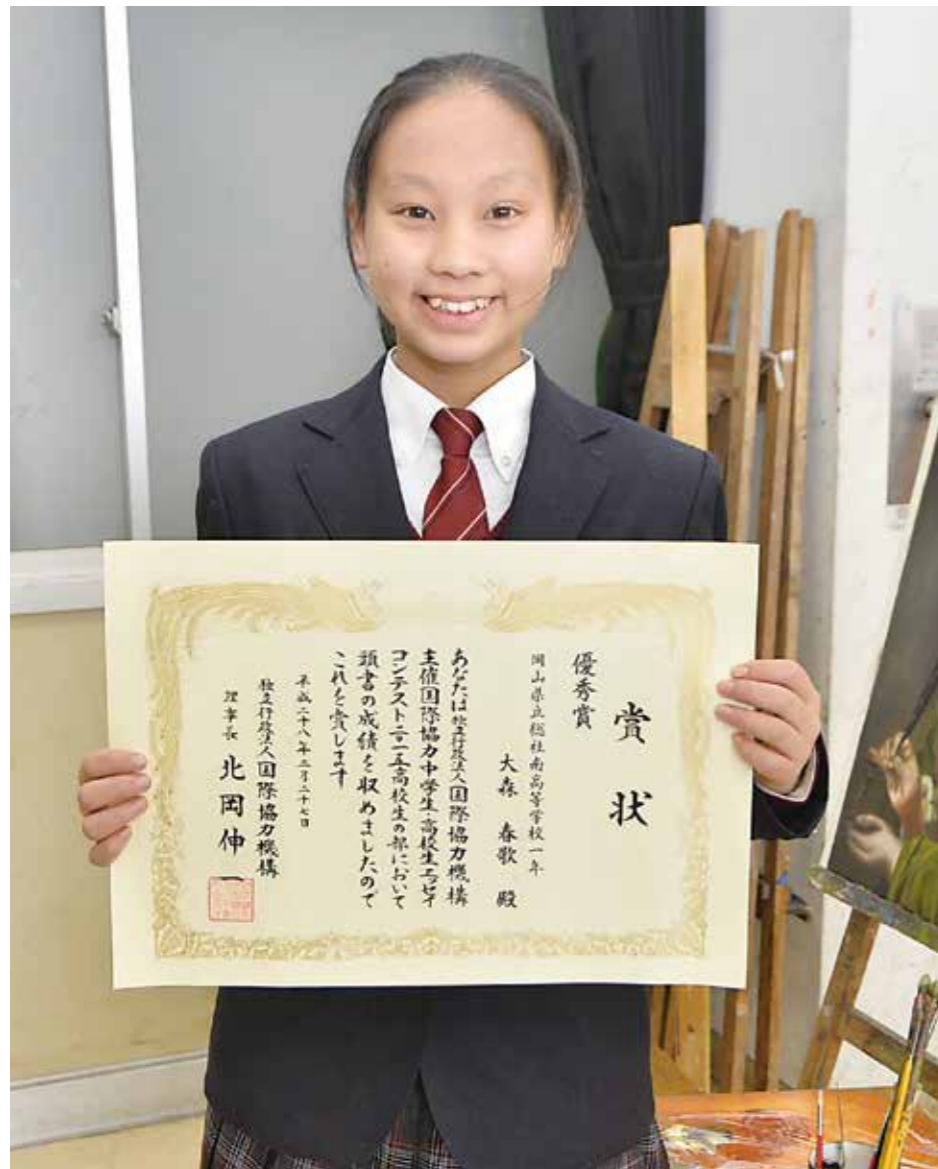 賞状
優秀賞
岡山県立総社南高等学校一年
大森 春歌 殿
あなたは独立行政法人国際協力機構
主催国際協力中学生・高校生エッセイ
コンテスト二〇一五高校生の部において
頭書の成績を収めましたので
これを賞します
平成二十八年二月二十七日
独立行政法人国際協力機構
理事長 北岡伸一